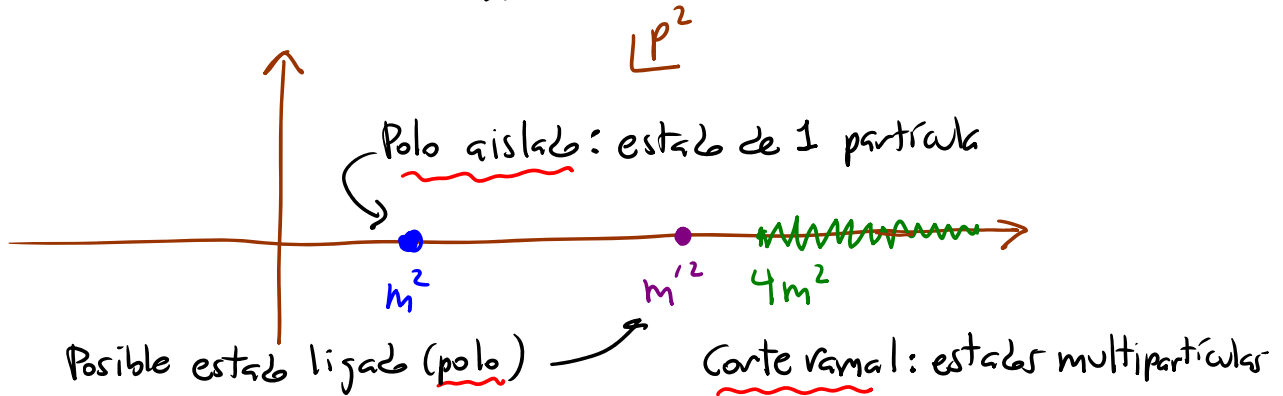 p²
Polo aislado: estado de 1 partícula
m²
m'²
4m²
Posible estado ligado (polo)
Corte ramal: estados multipartículas